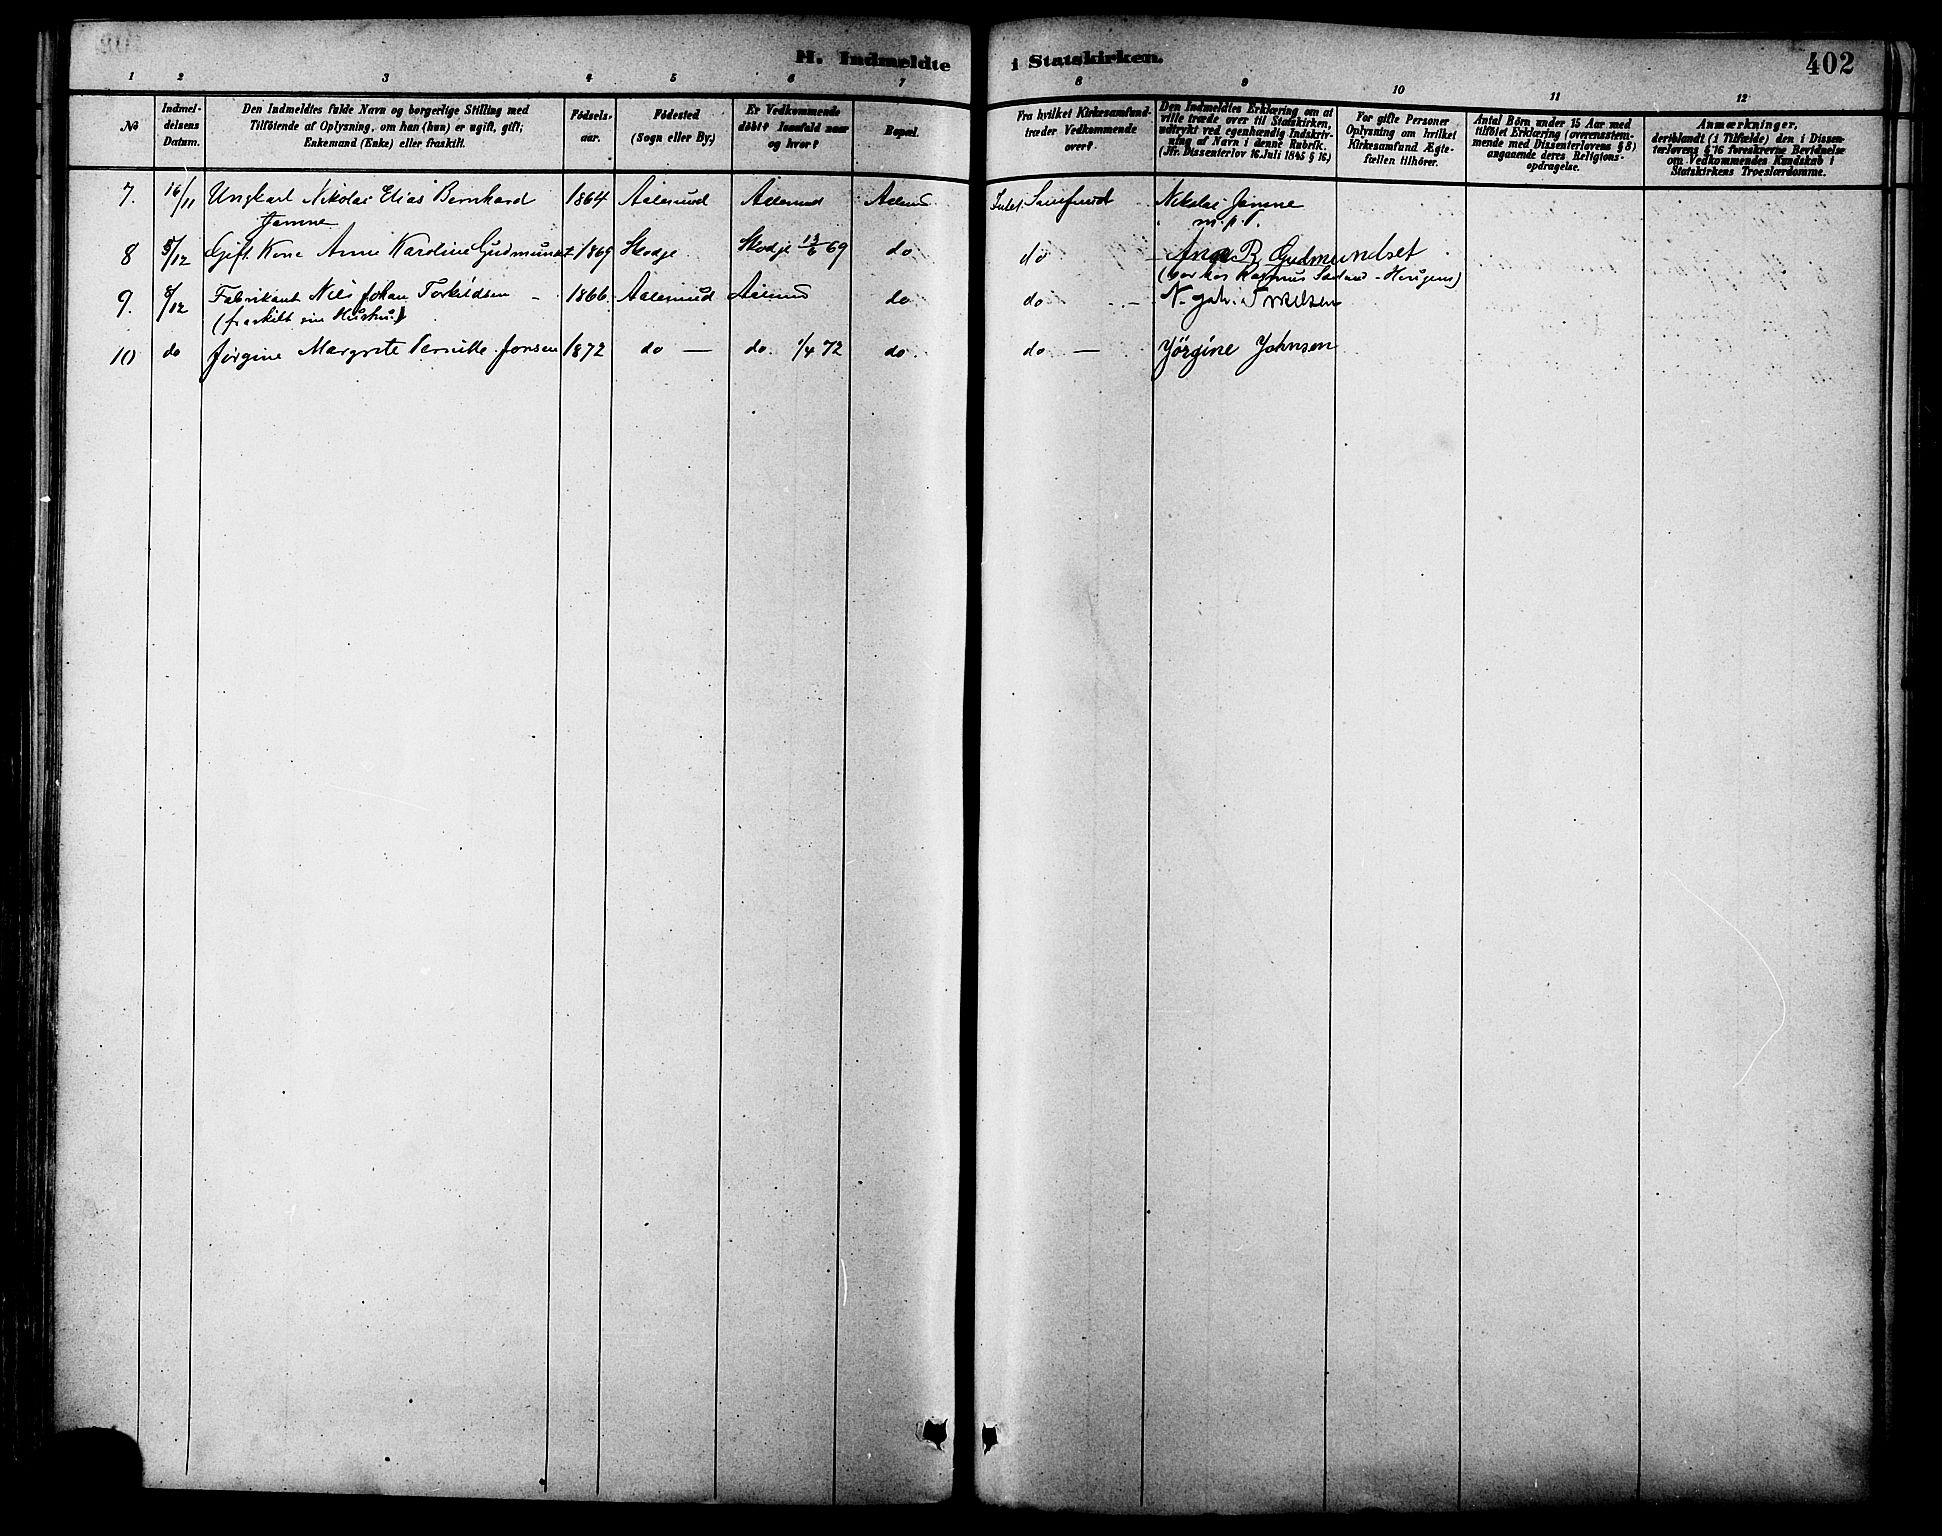 H. Indmeldte i Statskirken.
402
1 2 3 4 5 6 7 8 9 10 11 12
No
Indmeldelsens Datum.
Den Indmeldtes fulde Navn og borgerlige Stilling med
Tilföiende af Oplysning, om han (hun) er ugift, gift;
Enkemand (Enke) eller fraskilt.
Födselsaar.
Födested
(Sogn eller By.)
Er Vedkommende
döbt? Isaafald naar
og hvor?
Bopæl.
Fra hvilket Kirkesamfund
træder Vedkommende
over?
Den Indmeldtes Erklæring om at
ville træde over til Statskirken,
udtrykt ved egenhændig Indskriv-
ning af Navn i denne Rubrik.
(Jfr. Dissenterlov 16 Juli 1845 § 16.)
For gifte Personer
Oplysning om hvilket
Kirkesamfund Ægte-
fællen tilhörer.
Antal Börn under 15 Aar med
tilföiet Erklæring (overensstem-
mende med Dissenterlovens § 8)
angaaende deres Religions-
opdragelse.
Anmærkninger,
deriblandt (i Tilfælde) den i Dissen-
terlovens § 16 foreskrevne Bevidnelse
om Vedkommendes Kundskab i
Statskirkens Troeslærdomme.
7. 16/11 Ungkarl Nikolai Elias Bernhard 1864 Aalesund Aalesund Aalesund Luth. Samfund Nikolai Jamne
Jamne m.p.P.
8 5/12 Gift Kone Anne Karoline Gudmundset 1869 Skodje Skodje 13/6 69 do do Ana R Gudmundset
(bor hos Rasmus - Hougens)
9. 8/12 Fabrikant Nils Johan Torkildsen - 1866 Aalesund Aalesund do do - N. Joh. Torkilsen
(fraskilt sin Hustru)
10 do Jørgine Margrete Pernille Jonsen 1872 do — do. 1/4 72 do. do — Jörgine Johnsen